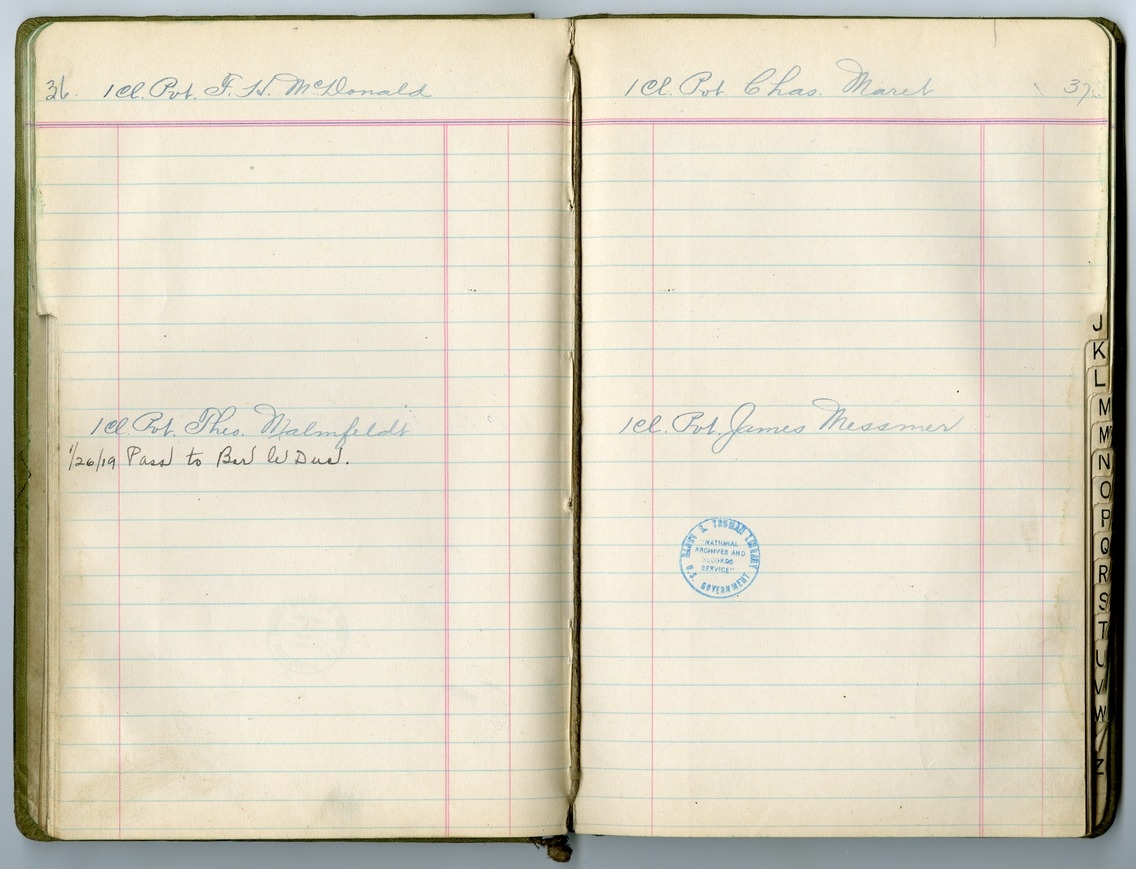 36. 1Cl. Pvt. F. H. McDonald
1Cl. Pvt. Theo. Malmfeldt
1/26/19 Pass to Bar le Duc.
1Cl. Pvt. Chas. Maret 37
1Cl. Pvt. James Messmer
HARRY S. TRUMAN LIBRARY
"NATIONAL
ARCHIVES AND
RECORDS
SERVICE"
U.S. GOVERNMENT
J
K
L
M
M
N
O
P
Q
R
S
T
U
V
W
Z